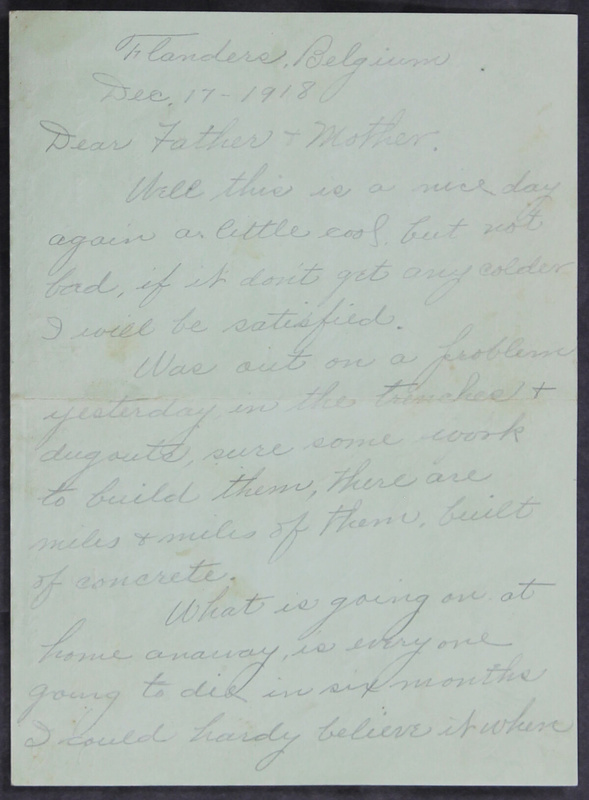 Flanders, Belgium
Dec. 17-1918
Dear Father + Mother.
Well this is a nice day
again a little cool, but not
bad, if it don't get any colder
I will be satisfied.
Was out on a problem
yesterday in the trenches +
dugouts, sure some work
to build them, there are
miles & miles of them, built
of concrete.
What is going on at
home anaway, is every one
going to die in six months
I could hardy believe it when